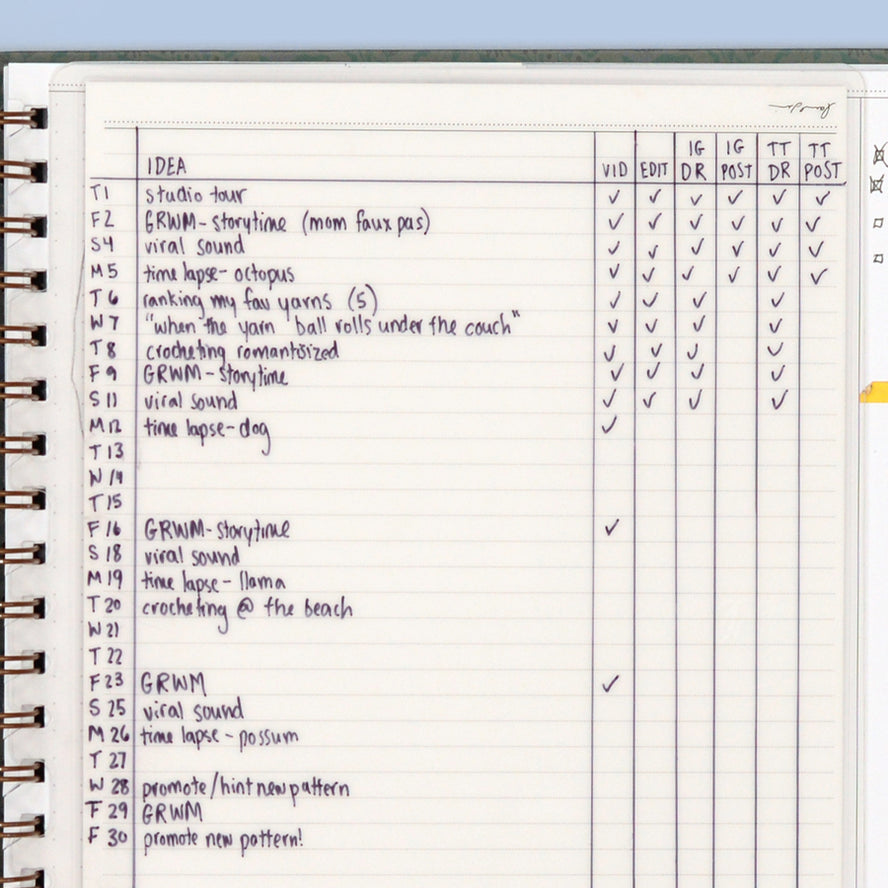 IDEA VID EDIT IG DR IG POST TT DR TT POST
T1 studio tour ✓ ✓ ✓ ✓ ✓ ✓
F2 GRWM-storytime (mom faux pas) ✓ ✓ ✓ ✓ ✓ ✓
S4 viral sound ✓ ✓ ✓ ✓ ✓ ✓
M5 time lapse-octopus ✓ ✓ ✓ ✓ ✓ ✓
T6 ranking my fav yarns (5) ✓ ✓ ✓ ✓
W7 "when the yarn ball rolls under the couch" ✓ ✓ ✓ ✓
T8 crocheting romantisized ✓ ✓ ✓ ✓
F9 GRWM-storytime ✓ ✓ ✓ ✓
S11 viral sound ✓ ✓ ✓ ✓
M12 time lapse-dog ✓
T13
W14
T15
F16 GRWM-storytime ✓
S18 viral sound
M19 time lapse-llama
T20 crocheting @ the beach
W21
T22
F23 GRWM ✓
S25 viral sound
M26 time lapse-possum
T27
W28 promote/hint new pattern
F29 GRWM
F30 promote new pattern!